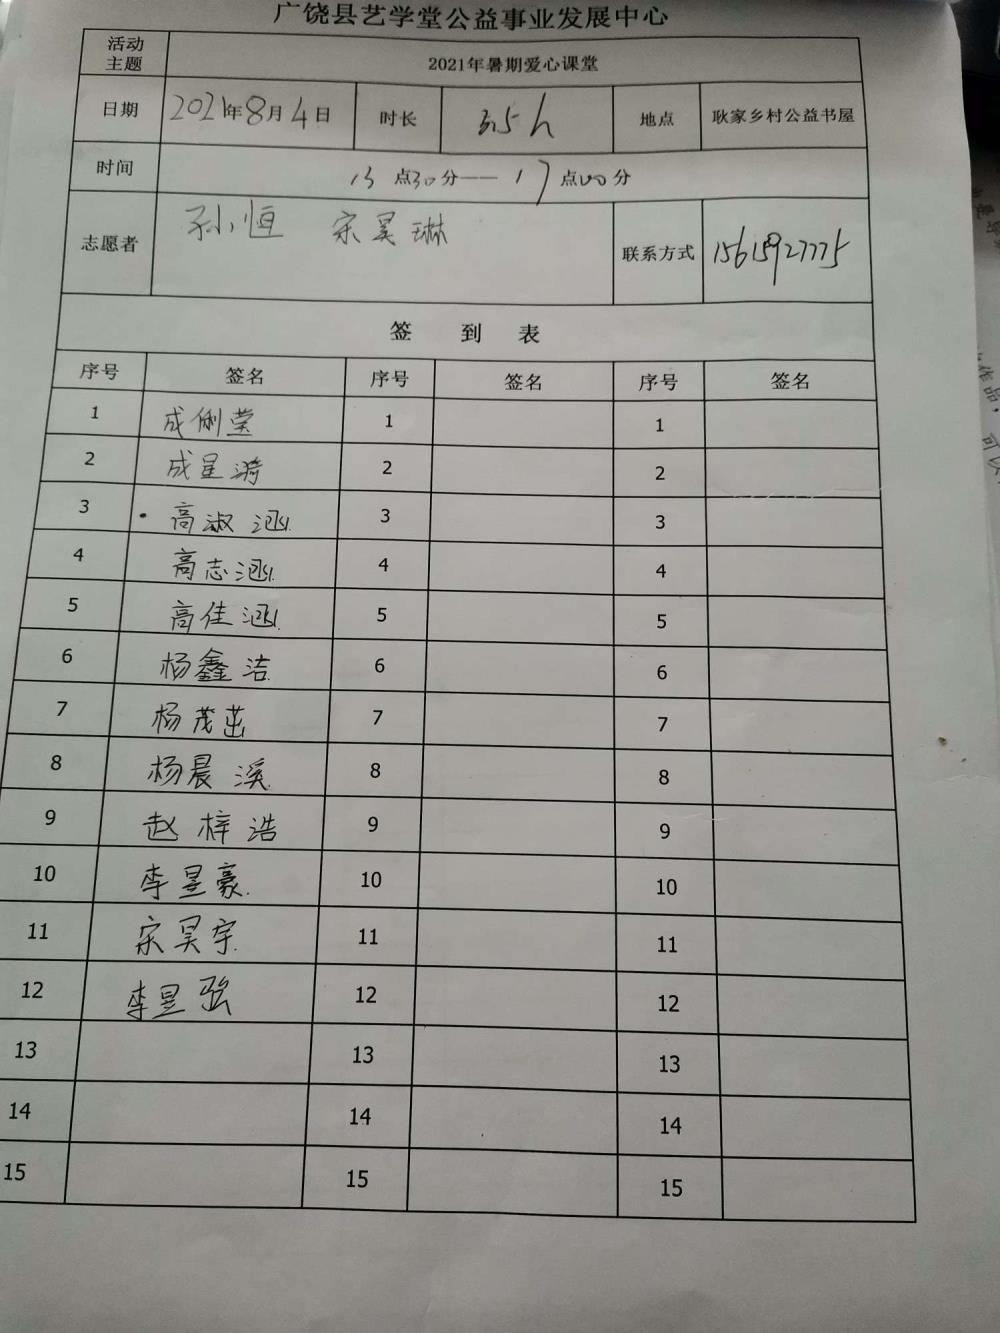 广饶县艺学堂公益事业发展中心
活动主题 2021年暑期爱心课堂
日期 2021年8月4日 时长 3.5h 地点 耿家乡村公益书屋
时间 13点30分——17点00分
志愿者 孙恒 宋昊琳 联系方式 15615927775
签 到 表
序号 签名 序号 签名 序号 签名
1 成俐莹 1 1
2 成星漪 2 2
3 高淑涵 3 3
4 高志涵 4 4
5 高佳涵 5 5
6 杨鑫洁 6 6
7 杨茂茁 7 7
8 杨晨溪 8 8
9 赵梓浩 9 9
10 李昱豪 10 10
11 宋昊宇 11 11
12 李昱弘 12 12
13 13 13
14 14 14
15 15 15
作品，
可以